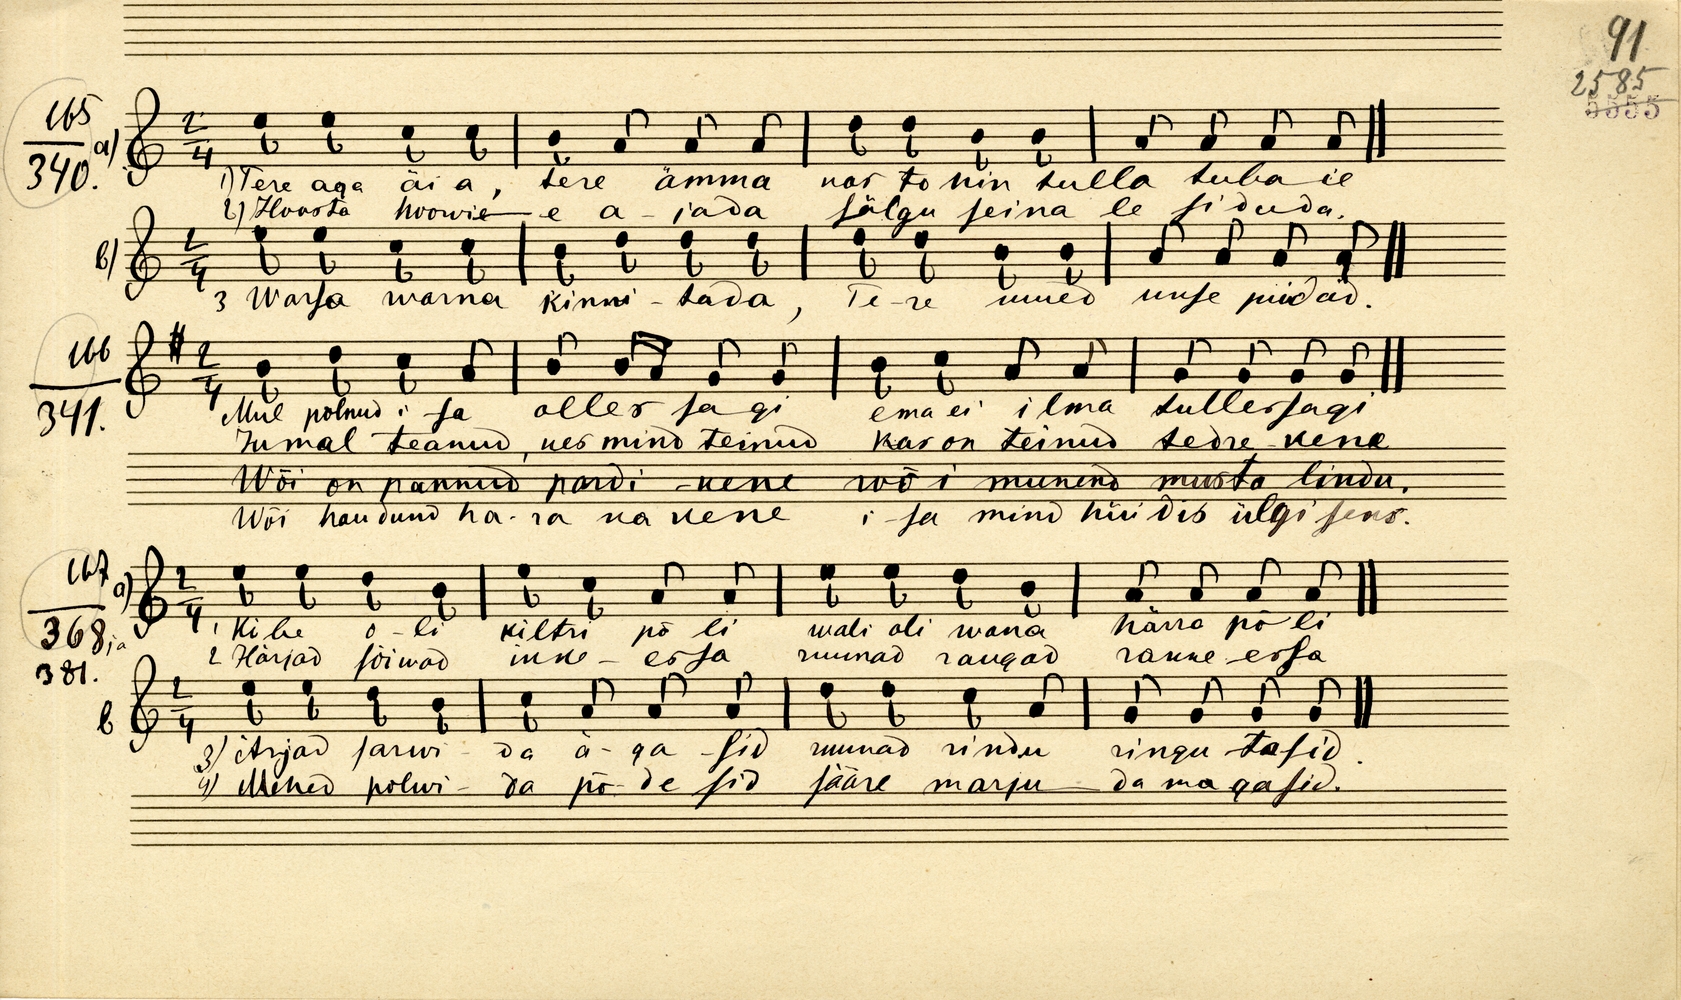 91
2585
5555
165
340.
a)
1) Tere aga äi a, tere ämma kas to hin tulla tuba ie
2) Hoosta hoowie e a - jada sälgu seina le siduda.
b)
3 Warsa warna kinni - tada, Te-re uued
166
341.
Mul polnud i - sa olles sa gi ema ei ilma tulles sagi
Jumal teanud, kes mind teinud kas on teinud tedre - kene
Wõi on pannud pardi - kene wõ i munend musta lindu.
Wõi haudund ha - ra ka kene i - sa mind hüidis ülgi
167
368, ja
381.
a)
1 o - li kiltri põ li wali oli wana härra põ li
2 Härjad sõiwad ikke - essa ruunad raugad rakke - essa
b
3) Ärjad sarwi - da ä - ga - sid ruunad rindu ringu tasid.
4) Mehed põlwi - da põ - de sid sääre marju da ma gasid.